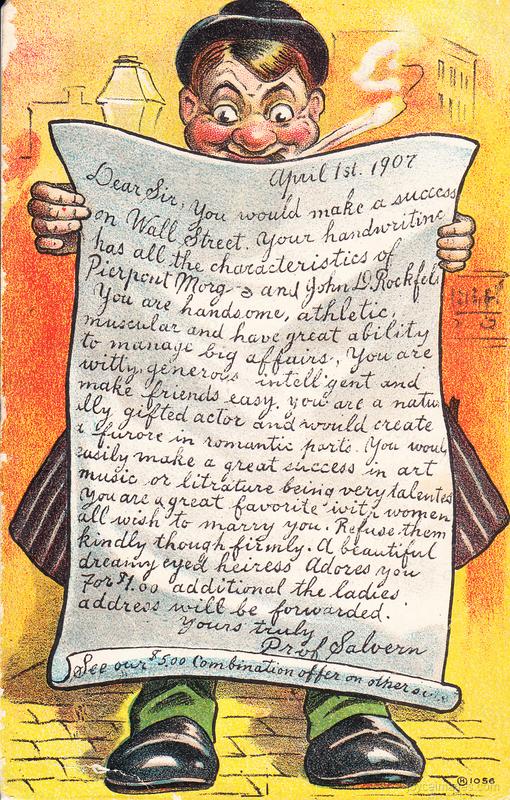 April 1st. 1907
Dear Sir, You would make a success
on Wall Street. Your handwriting
has all the characteristics of
Pierpont Morg and John D. Rockfels
You are handsome, athletic,
muscular and have great ability
to manage big affairs, You are
witty, generous intelligent and
make friends easy. you are a natu
lly gifted actor and would create
a furore in romantic parts. You would
easily make a great success in art
music or litrature being very talented
You are a great favorite with women
all wish to marry you. Refuse them
kindly though firmly. A beautiful
dreamy eyed heiress Adores you
For $1.00 additional the ladies
address will be forwarded.
Yours truly
Prof Salvern
See our $5.00 Combination offer on other si..
H 1056